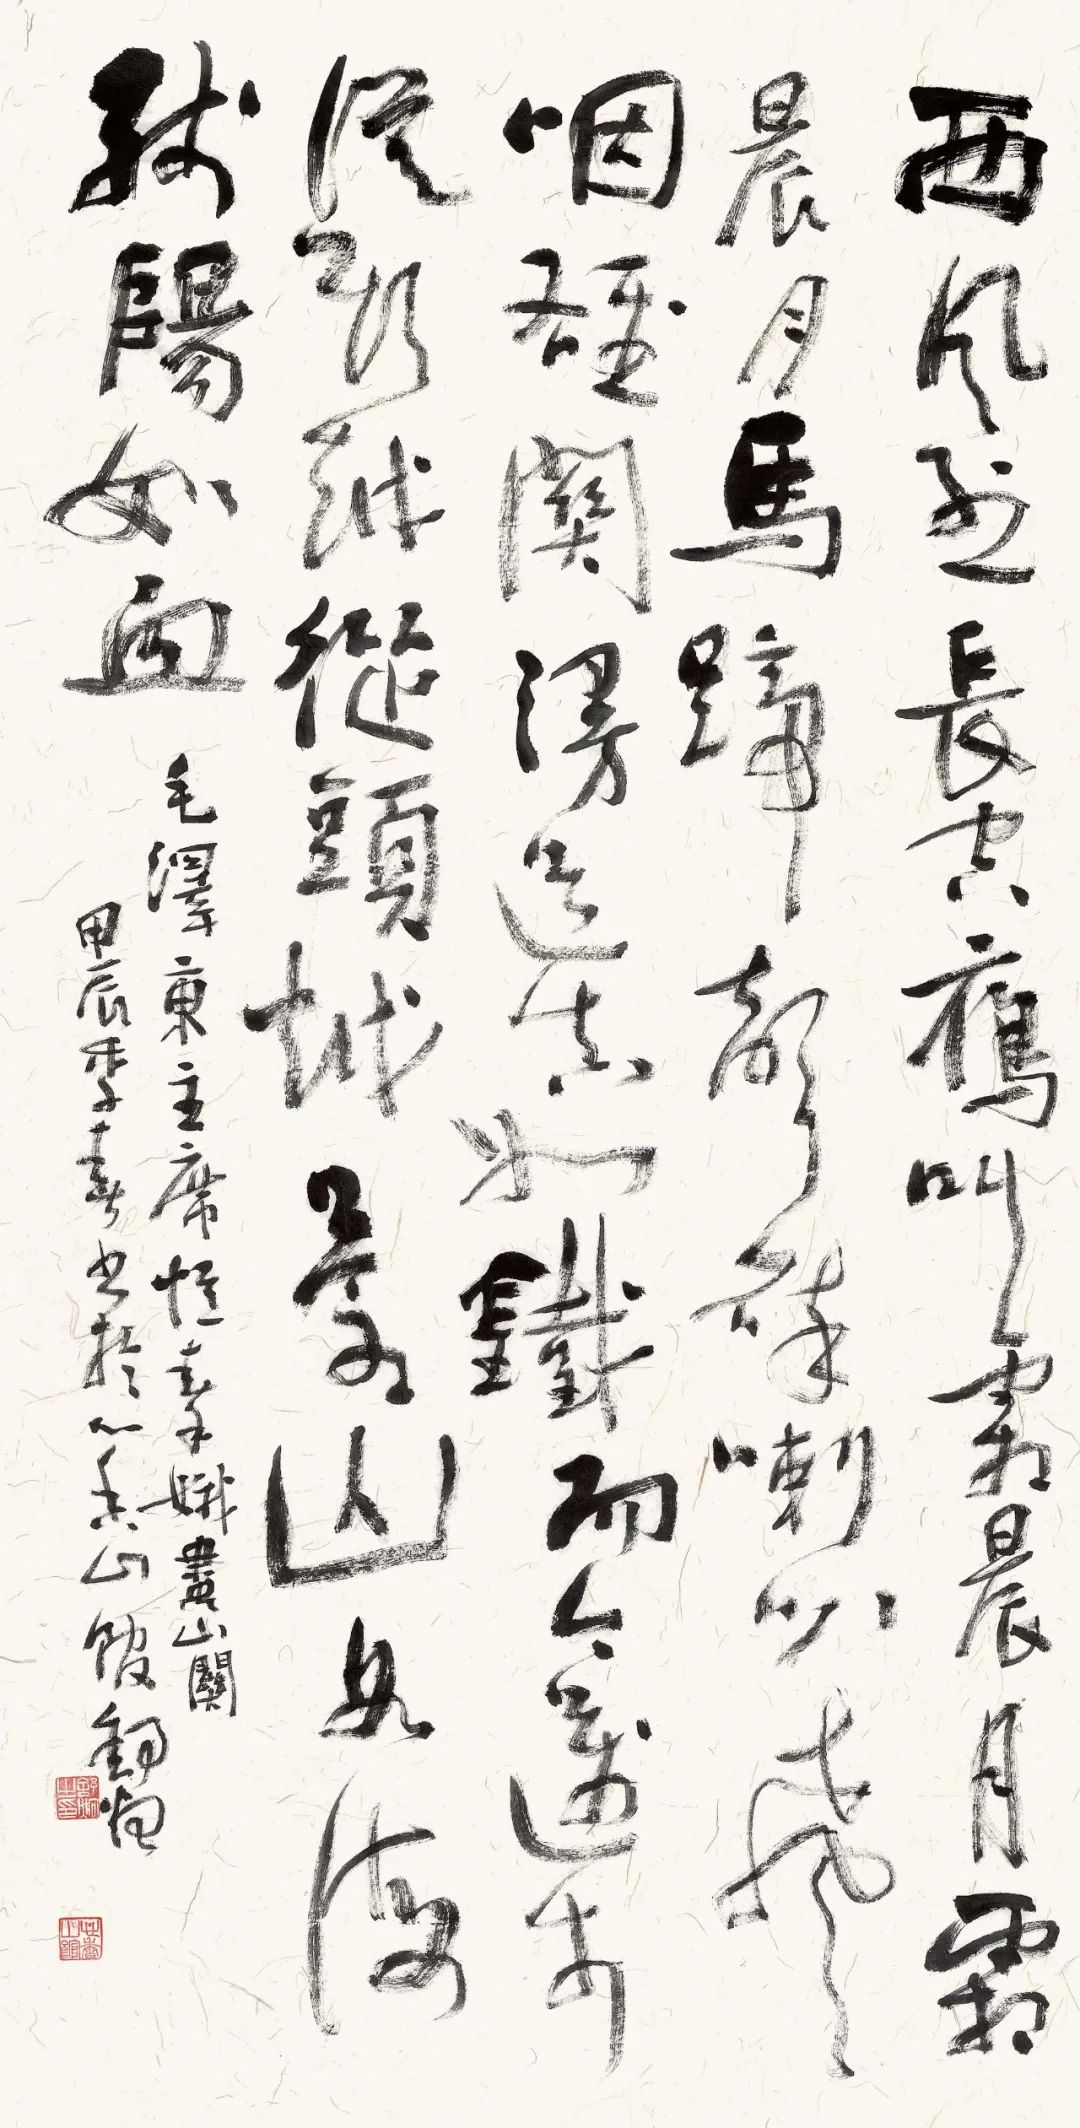 西風烈長空鷹叫霜晨月霜
晨月馬蹄聲碎喇叭聲
咽雄關漫道真如鐵而今邁步
從頭越從頭越蒼山如海
殘陽如血
毛澤東主席憶秦娥婁山關
甲辰季春書於心香山館舒炯